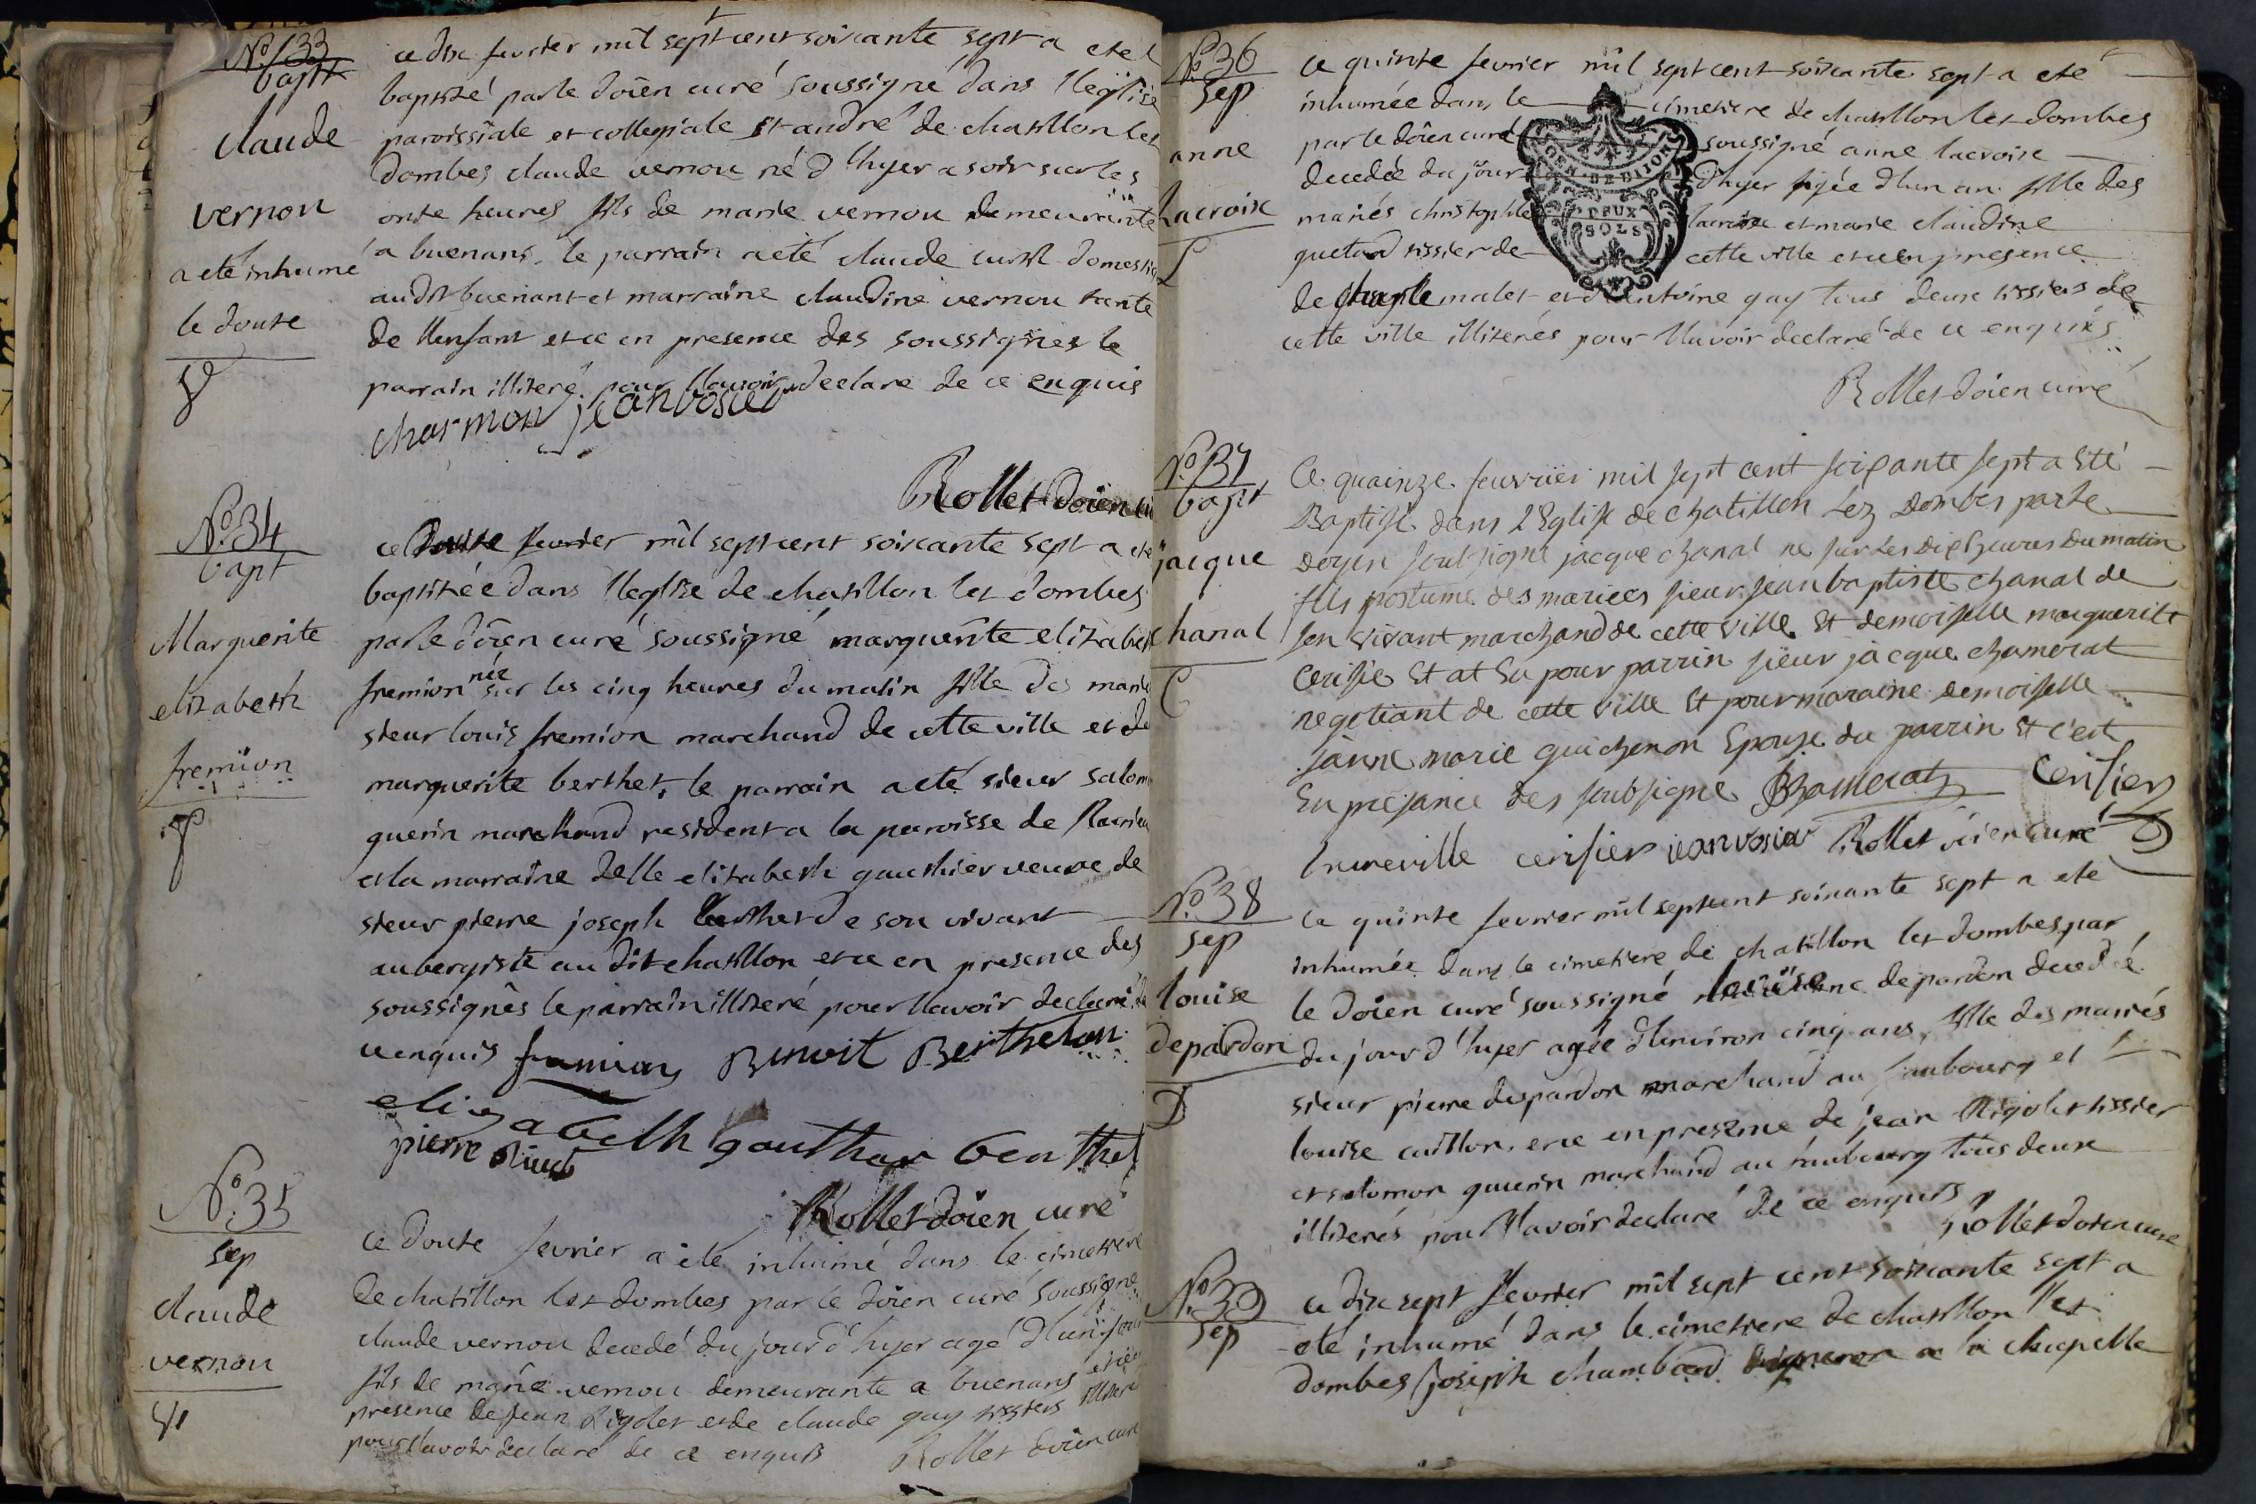 N.o 33
bapt
claude
vernou
a eté inhumé
le douze
ce dix fevrier mil sept cent soixante sept a eté
baptisé par le doïen curé soussigné dans l'eglise
paroissiale et collegiale st andré de chatillon les
dombes claude vernou né d'hyer a soir sur les
onze heures fils de marie vernou demeurante
a buenans. le parrain a eté claude domestique
audit buenant et marraine claudine vernou tante
de l'enfant et ce en presence des soussignés le
parrain illiteré pour l'avoir declaré de ce enquis
charmon jean vosier
Rollet doïen cu
N.o 34
bapt
Marguerite
elizabeth
fremion
ce douze fevrier mil sept cent soixante sept a eté
baptisée dans l'eglise de chatillon les dombes
par le doïen curé soussigné marguerite elizabeth
fremion née sur les cinq heures du matin fille des mariés
sieur louis fremion marchand de cette ville et de
marguerite berthet, le parrain a eté sieur salomon
guerin marchand resident a la paroisse de
et la marraine delle elizabeth gauthier veuve de
sieur pierre joseph de son vivant
aubergiste au dit chatillon et ce en presence des
soussignés le parrain illiteré pour l'avoir declaré de
ce enquis fremion Benoit Berthelon
elizabeth gauthier berthet
pierre
Rollet doïen curé
N.o 35
sep
claude
vernou
ce douze fevrier a eté inhumé dans le cimetiere
de chatillon les dombes par le doïen curé soussigné
claude vernou decedé du jour d'hyer agé d'un jour
fils de marie vernou demeurante a buenans et ce en
presence de jean Rigolet et de claude gay tissiers illiterés
pour l'avoir declaré de ce enquis Rollet doïen curé
N.o 36
sep
anne
lacroix
L
ce quinze fevrier mil sept cent soixante sept a eté
inhumée dans le cimetiere de chatillon les dombes
par le doïen curé soussigné anne lacroix
decedée du jour d'hyer agée d'un an fille des
mariés christophle lacroix et marie claudine
quetand tissier de cette ville et ce en presence
de malet et d'antoine gay tous deux tissiers de
cette ville illiterés pour l'avoir declaré de ce enquis
Rollet doïen curé
GEN. DE DIJON
DEUX
SOLS
N.o 37
bapt
jacque
chanal
C
Ce quainze feuvrier mil sept cent soixante sept a Eté
Baptisé dans l'Eglise de chatillon Lez Dombes par le
Doyen soubsigné jacque chanal né sur les dix heures du matin
fils postume des mariees sieur jean baptiste chanal de
son vivant marchand de cette ville Et demoiselle marguerite
Cerisié Et at Eu pour parrin sieur jacque chamerat
negotiant de cette ville Et pour maraine demoiselle
janne marie guichenon Epouse du parrin Et c'est
En presance des soubsigné Chamerat Cerisier
lucreville cerisier jean vosier Rollet doïen curé
N.o 38
sep
louise
depardon
D
ce quinze fevrier mil sept cent soixante sept a eté
inhumée dans le cimetiere de chatillon les dombes par
le doïen curé soussigné louise depardon decedée
du jour d'hyer agée d'environ cinq ans, fille des mariés
sieur pierre depardon marchand au faubourg et
louise cuillon. et ce en presence de jean Rigolet tissier
et salomon guerin marchand au faubourg tous deux
illiterés pour l'avoir declaré de ce enquis
Rollet doïen curé
N.o 39
sep
ce dix sept fevrier mil sept cent soixante sept a
eté inhumé dans le cimetiere de chatillon les
dombes joseph chambard vigneron a la chapelle